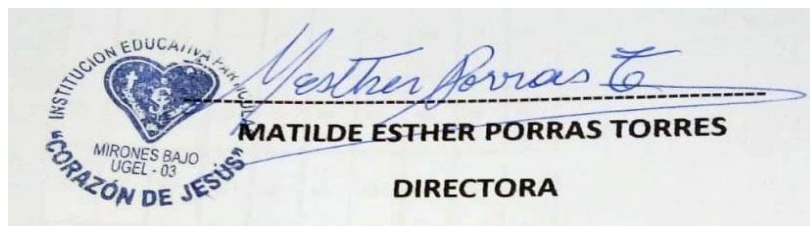 INSTITUCION EDUCATIVA PARTICULAR
MIRONES BAJO
UGEL - 03
"CORAZÓN DE JESÚS"
Mesther Porras T
MATILDE ESTHER PORRAS TORRES
DIRECTORA